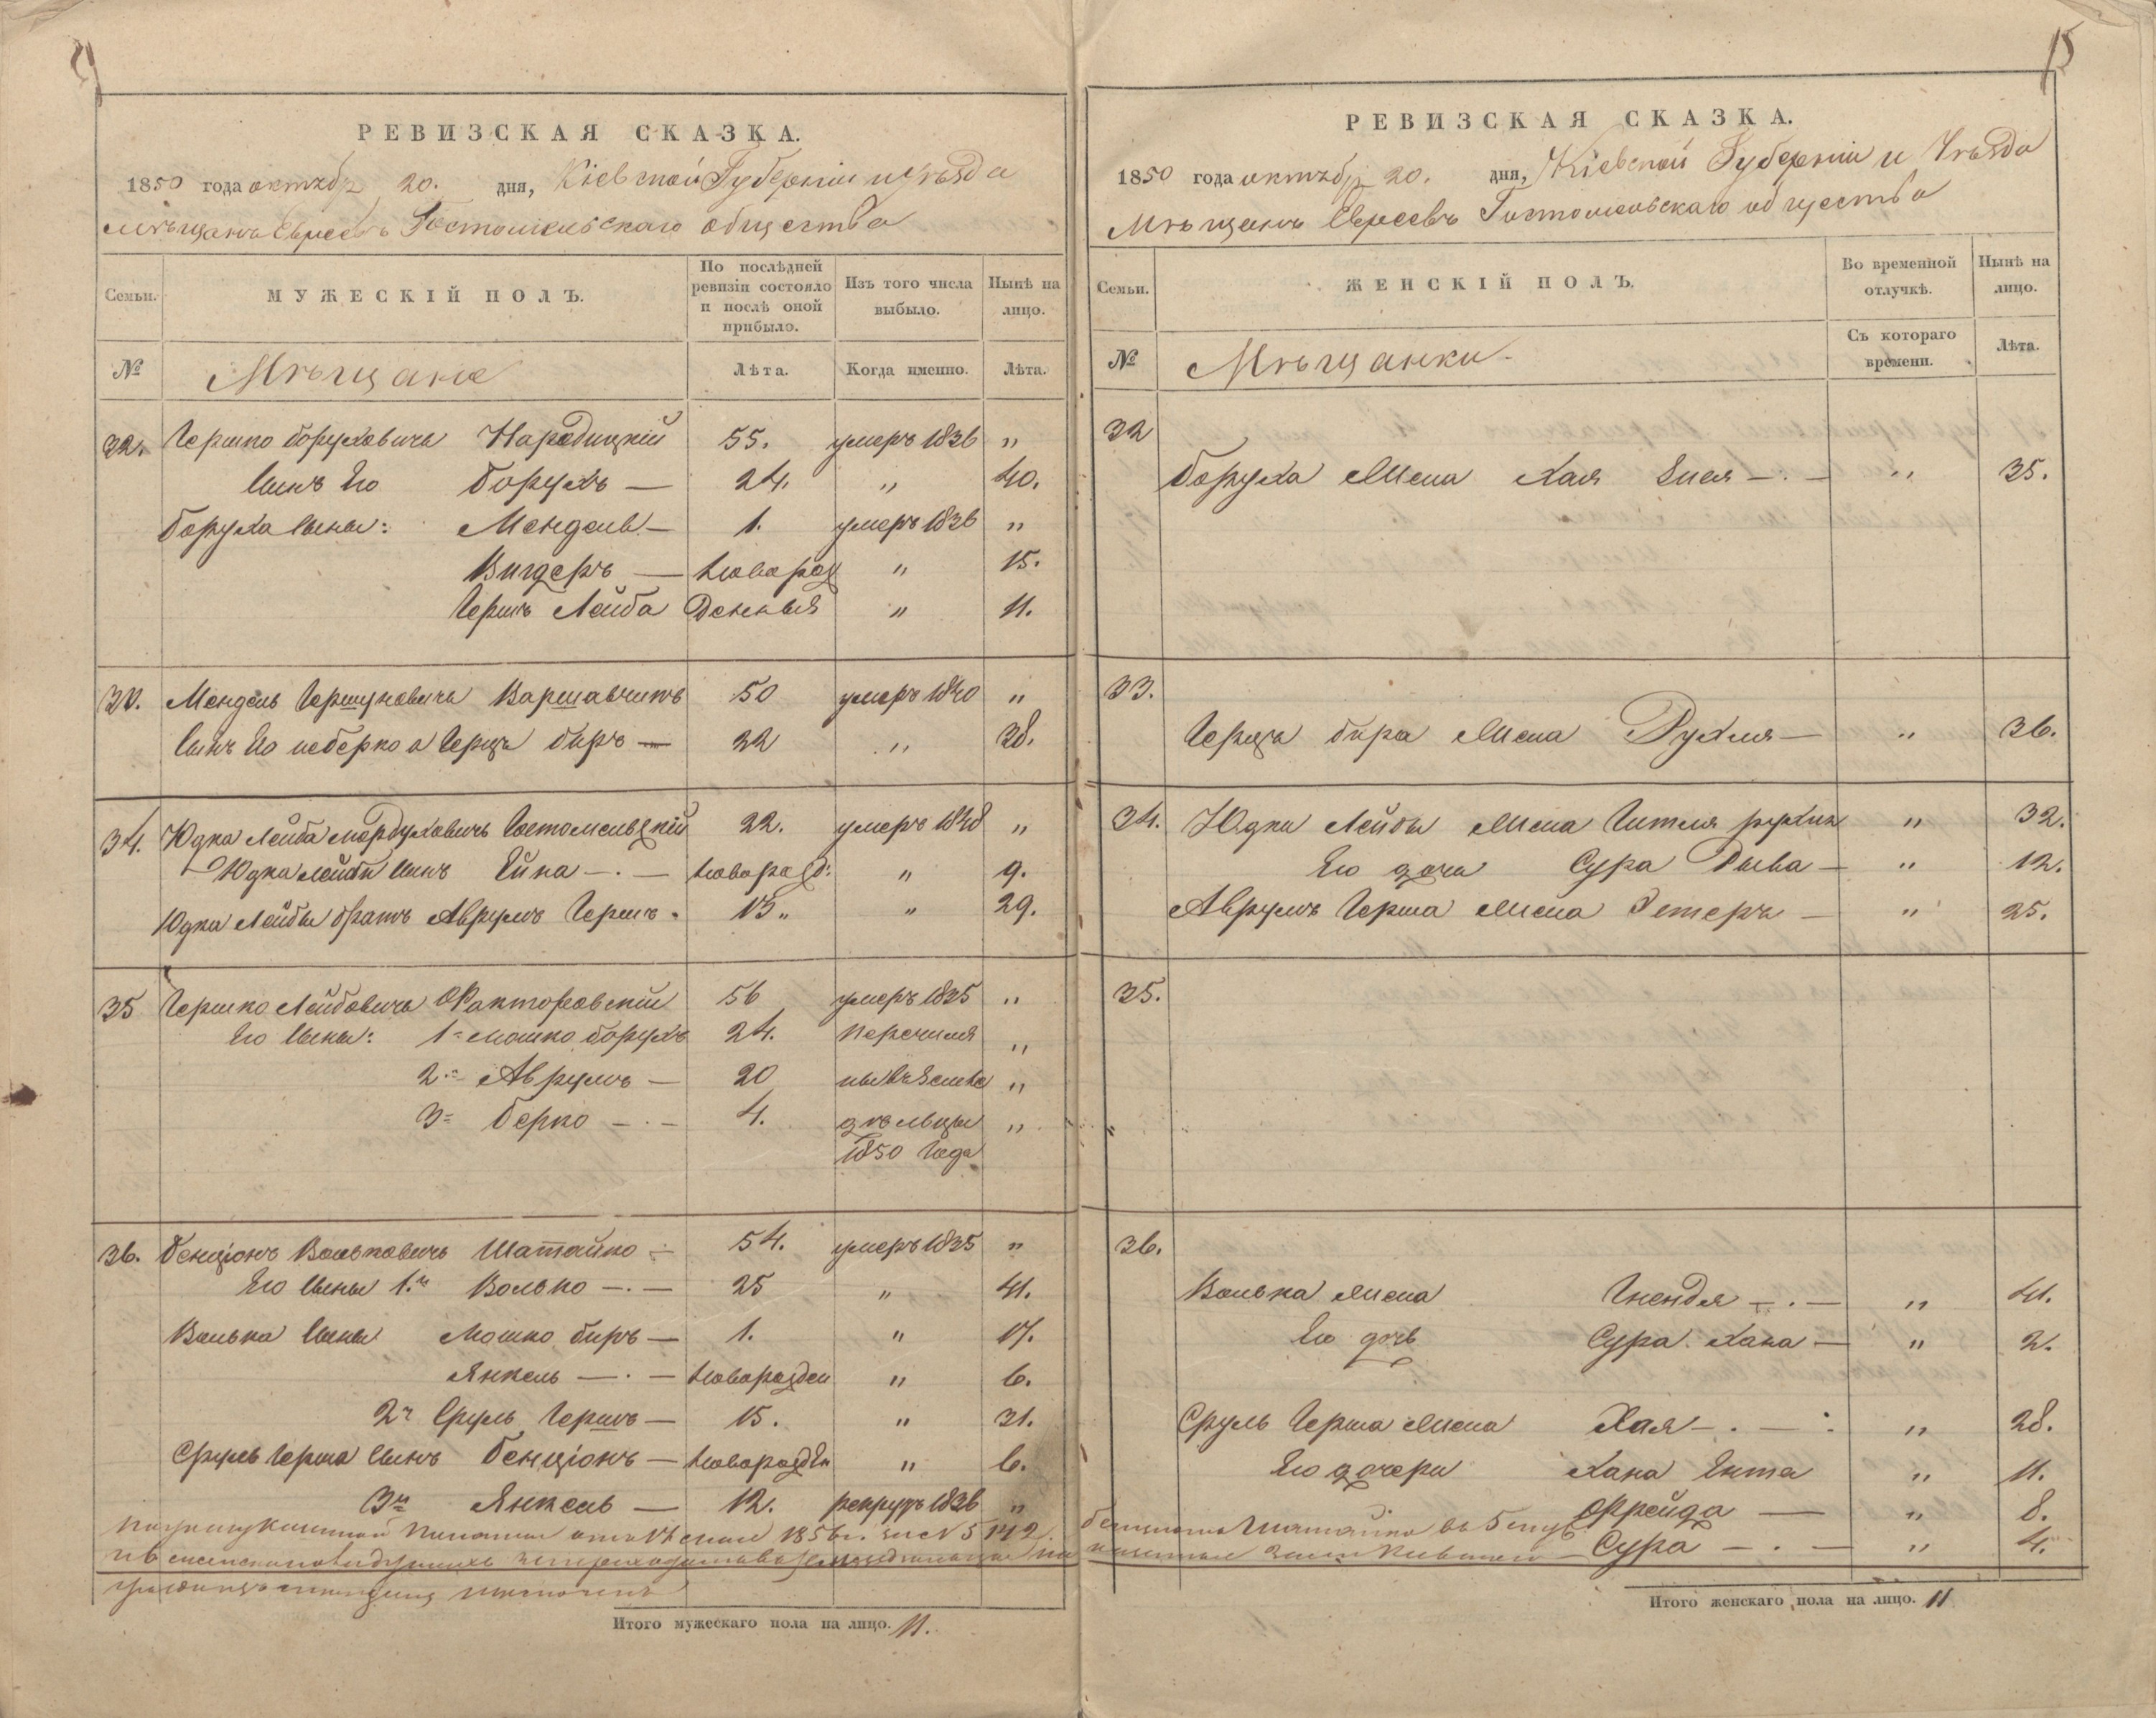 15
РЕВИЗСКАЯ СКАЗКА.
1850 года октябр 20. дня, Кіевской Губерніи и уѣзда
мѣщанъ Евреевъ Гостомельскаго общества
Семьи. МУЖЕСКІЙ ПОЛЪ. По послѣдней ревизіи состояло и послѣ оной прибыло. Изъ того числа выбыло. Нынѣ на лицо.
№ Мѣщане Лѣта. Когда именно. Лѣта.
32. Гершко Боруховичъ Народицкій 55. умеръ 1836 "
Сынъ Его Борухъ — 24. " 40.
Боруха Сыны: Мендель — 1. умеръ 1836 "
Вигдеръ — новорож " 15.
Гершъ Лейба денныя " 11.
33. Мендель Гершуновичъ Варшавчикъ 50 умеръ 1840 "
Сынъ Его неберко а Герцъ Биръ — 22 " 38.
34. Юдка Лейба Мордуховичъ Гостомельскій 22. умеръ 1848 "
Юдка Лейбы Сынъ Ейна — . — новорожд: " 9.
Юдка Лейбы братъ Аврумъ Гершъ. 13 " " 29.
35 Гершко Лейбовичъ Факторовскій 56 умеръ 1835 "
Его Сыны: 1= Мошко Борухъ 24. перечисле "
2= Аврумъ — 20 ны въ земле "
3= Берко — . — 4. дѣльцы "
1850 года
36. Бенціонъ Вольковичъ Шатайко 54. умеръ 1835 "
Его Сыны 1й Волько — . — 25 " 41.
Волька Сыны Мошко Биръ — 1. " 17.
Янкель — . — новорожден " 6.
2й Сруль Гершъ — 15. " 31.
Сруль Герша Сынъ Бенціонъ — новорожден " 6.
3й Янкель — 12. рекрутъ 1836 "
Итого мужескаго пола на лицо. 11.
15
РЕВИЗСКАЯ СКАЗКА.
1850 года октябр 20. дня, Кіевской Губерніи и Уѣзда
Мѣщанъ Евреевъ Гостомельскаго общества
Семьи. ЖЕНСКІЙ ПОЛЪ. Во временной отлучкѣ. Нынѣ на лицо.
№ Мѣщанки. Съ котораго времени. Лѣта.
32
Боруха Жена Хая Энея — . — " 35.
33.
Герцъ Бира Жена Рухля — " 36.
34. Юдки Лейбы Жена Гитля рухля " 32.
Его дочь Сура Рыва — " 12.
Аврумъ Герша Жена Этеръ — " 25.
35.
36.
Волька Жена Гнендя — . — " 41.
Его дочь Сура Хана — " 2.
Сруль Герша Жена Хая — . — " 28.
Его дочери Хана Ента " 11.
Фрейда — " 8.
Сура — . — " 4.
Итого женскаго пола на лицо. 11